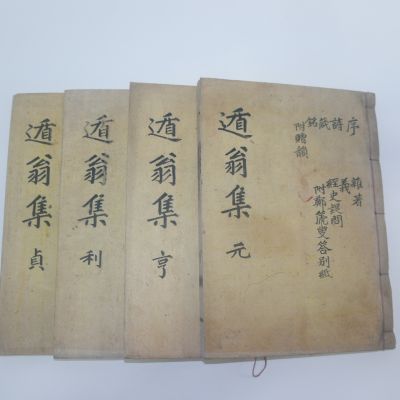 遁翁集 元
序
詩
箴
銘
附贈韻
雜著
義
經史疑問
附鄭篪叟答別紙
遁翁集 亨
遁翁集 利
遁翁集 貞